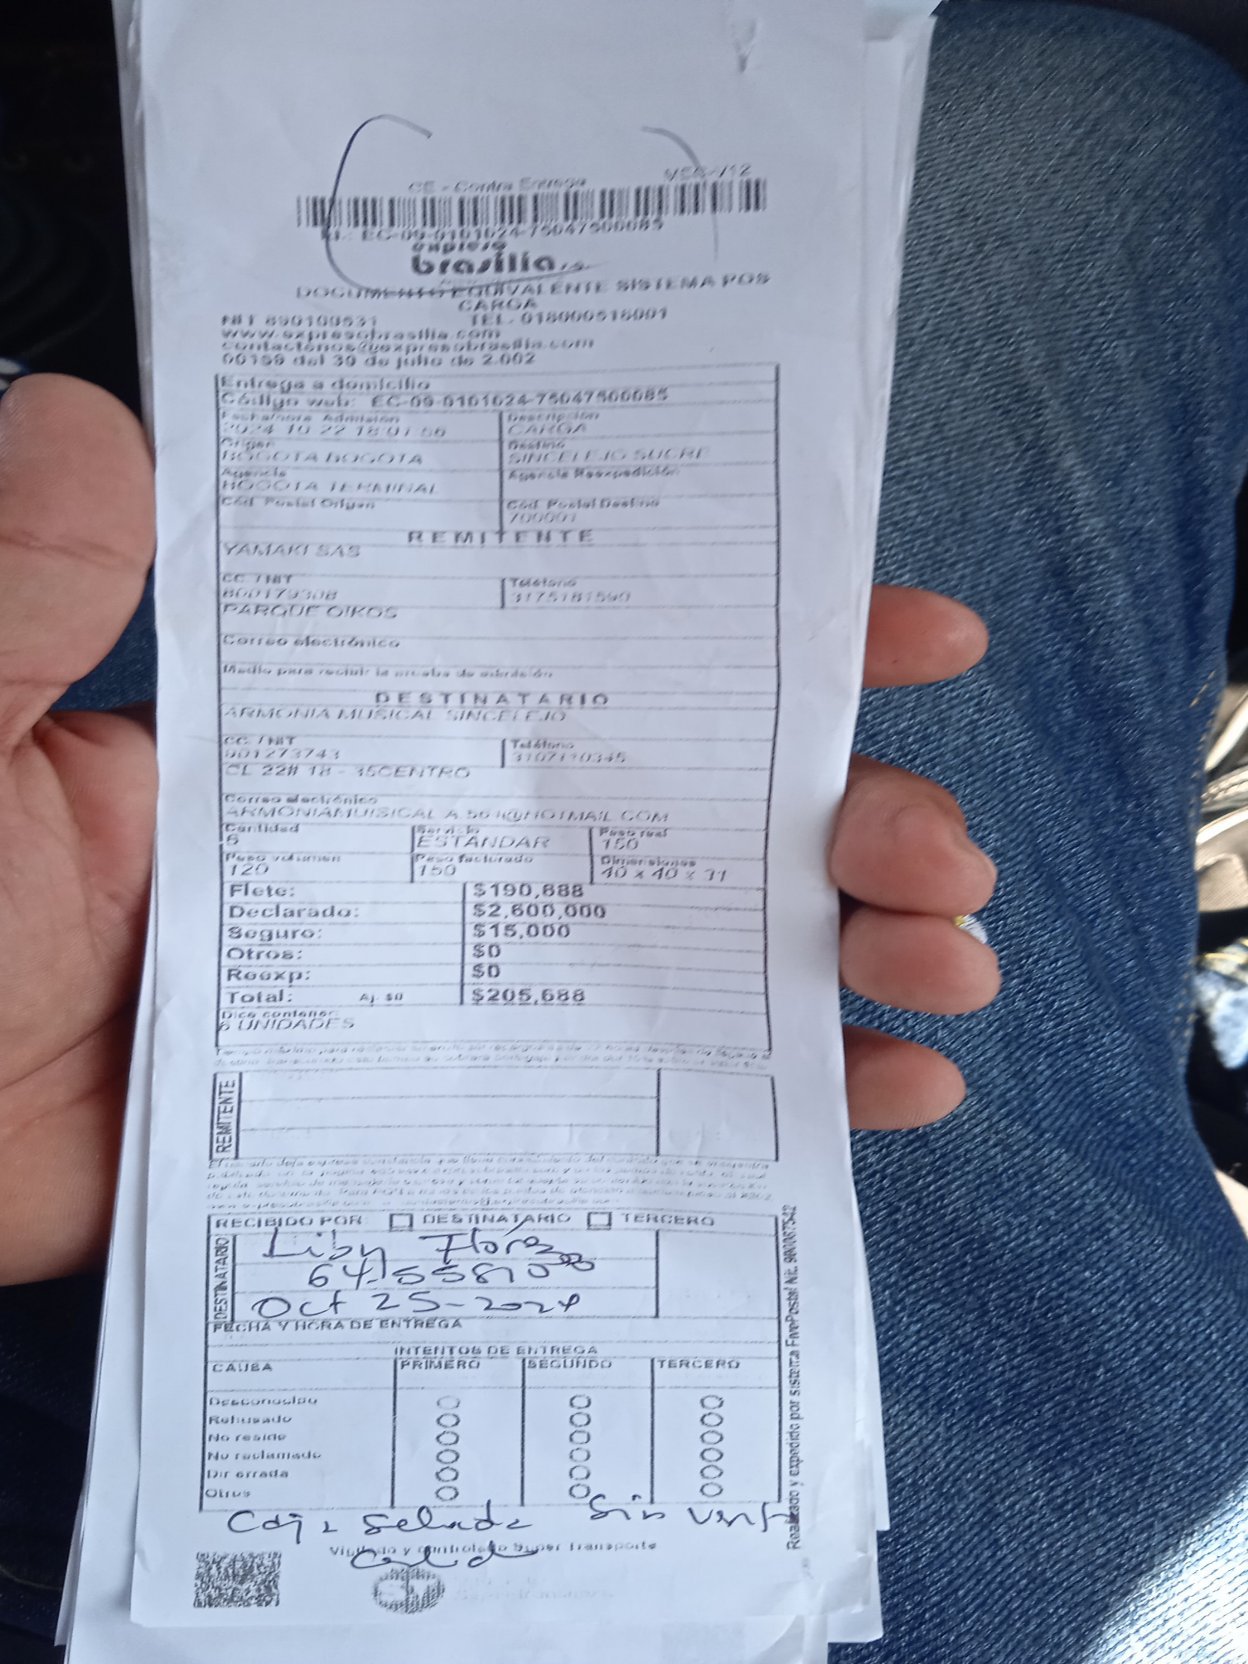 CE - Contra Entrega
EC-09-0101024-75047500085
expreso
brasilia s.a.
DOCUMENTO EQUIVALENTE SISTEMA POS
CARGA
NIT 890100531 TEL. 018000518001
www.expresobrasilia.com
contactenos@expresobrasilia.com
00199 del 30 de julio de 2.002
Entrega a domicilio
Código web: EC-09-0101024-75047500085
Fecha/Hora Admisión Descripción
2024-10-22 18:01:56 CARGA
Origen Destino
BOGOTA BOGOTA SINCELEJO SUCRE
Agencia Agencia Reexpedición
BOGOTA TERMINAL
Cód. Postal Origen Cód. Postal Destino
700001
REMITENTE
YAMAKI SAS
CC. / NIT Teléfono
800179308 3175181590
PARQUE OIKOS
Correo electrónico
Medio para recibir la prueba de admisión
DESTINATARIO
ARMONIA MUSICAL SINCELEJO
CC. / NIT Teléfono
901273743
CL 22# 18 - 35CENTRO
Correo electrónico
Cantidad Servicio Peso real
6 ESTANDAR 150
Peso volumen Peso facturado Dimensiones
120 150 40 x 40 x 31
Flete: $190,688
Declarado: $2,600,000
Seguro: $15,000
Otros: $0
Reexp: $0
Total: Aj. $0 $205,688
Dice contener:
6 UNIDADES
REMITENTE
RECIBIDO POR DESTINATARIO TERCERO
DESTINATARIO
Oct 25-2024
FECHA Y HORA DE ENTREGA
INTENTOS DE ENTREGA
CAUSA PRIMERO SEGUNDO TERCERO
Desconocido
Rehusado
No reside
No reclamado
Dir errada
Otros
Caja Sellada Sin
Vigilado y controlado Super Transporte
Realizado y expedido por sistema FivePostal Nit.